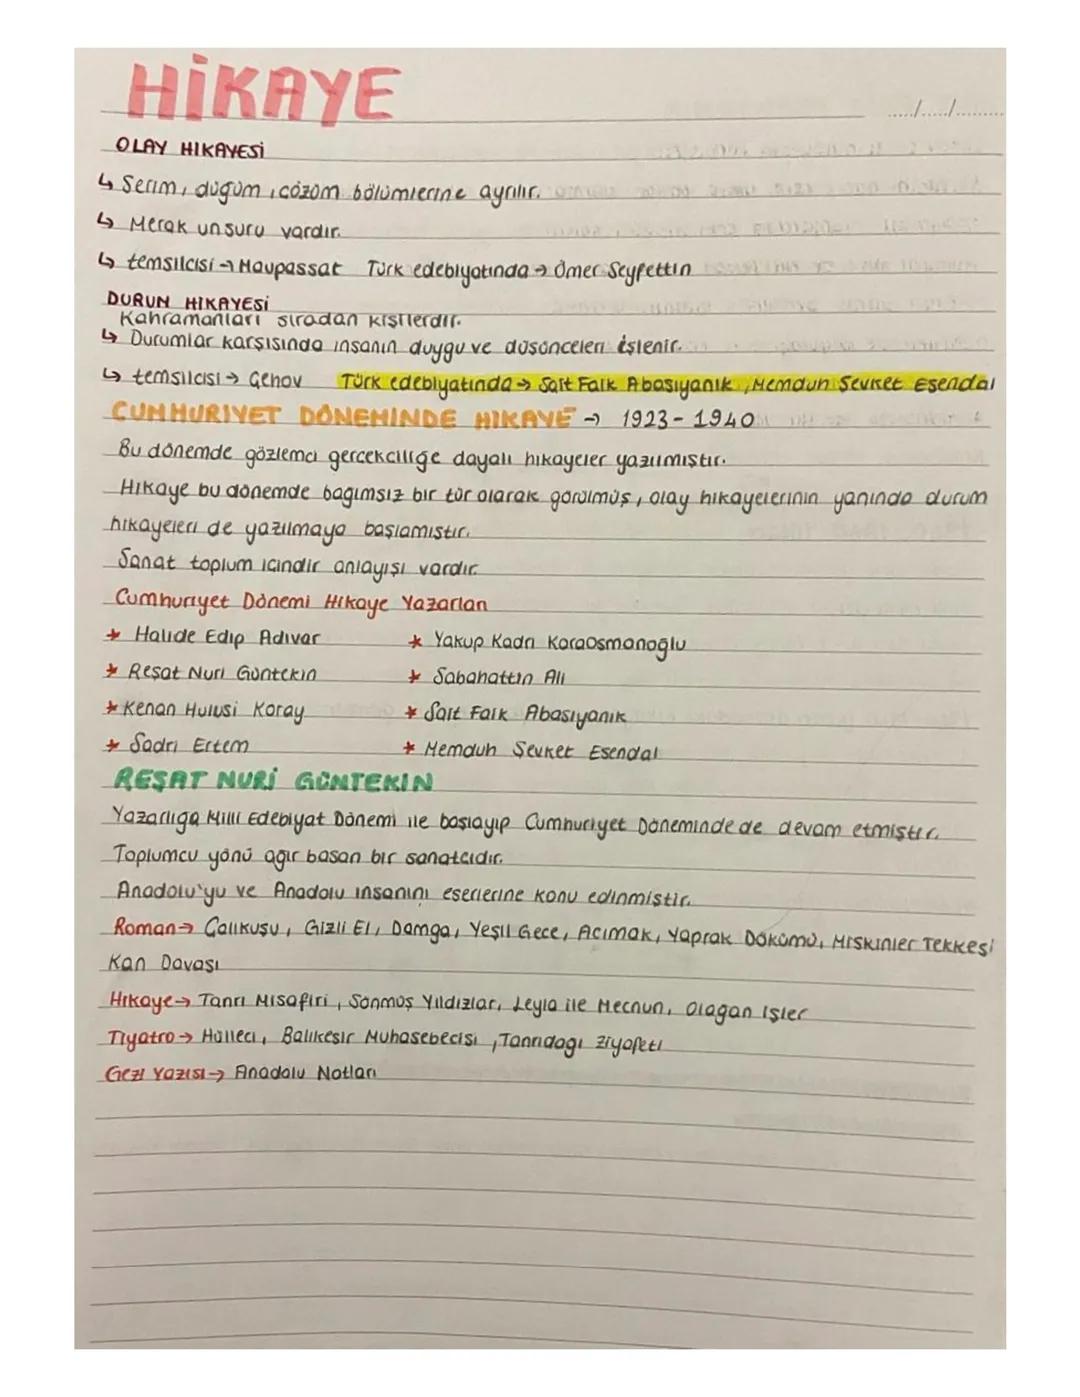 HİKAYE
...../...../.........
OLAY HIKAYESİ
↳ Serim, düğüm, çözüm bölümlerine ayrılır.
↳ Merak unsuru vardır.
↳ temsilcisi → Maupassat Türk edebiyatında → Ömer Seyfettin
DURUN HIKAYESİ
Kahramanları sıradan kişilerdir.
↳ Durumlar karşısında insanın duygu ve düşünceleri işlenir.
↳ temsilcisi → Çehov Türk edebiyatında → Sait Faik Abasıyanık, Memduh Şevket Esendal
CUMHURIYET DÖNEMINDE HIKAYE → 1923-1940
Bu dönemde gözlemci gerçekciliğe dayalı hikayeler yazılmıştır.
Hikaye bu dönemde bağımsız bir tür olarak görülmüş, olay hikayelerinin yanında durum
hikayeleri de yazılmaya başlamıştır.
Sanat toplum icindir anlayışı vardır.
Cumhuriyet Dönemi Hikaye Yazarları
* Halide Edip Adıvar * Yakup Kadri Karaosmanoğlu
* Reşat Nuri Güntekin * Sabahattin Ali
* Kenan Hulusi Koray * Sait Faik Abasıyanık
* Sadri Ertem * Memduh Şevket Esendal
REŞAT NURİ GÜNTEKIN
Yazarlığa Milli Edebiyat Dönemi ile başlayıp Cumhuriyet Döneminde de devam etmiştir.
Toplumcu yönü ağır basan bir sanatcıdır.
Anadolu'yu ve Anadolu insanını eserlerine konu edinmiştir.
Roman → Çalıkuşu, Gizli El, Damga, Yeşil Gece, Acımak, Yaprak Dökümü, Miskinler Tekkesi
Kan Davası
Hikaye → Tanrı Misafiri, Sönmüş Yıldızlar, Leyla ile Mecnun, Olağan İşler
Tiyatro → Hülleci, Balıkesir Muhasebecisi, Tanrıdağı Ziyafeti
Gezi Yazısı → Anadolu Notları